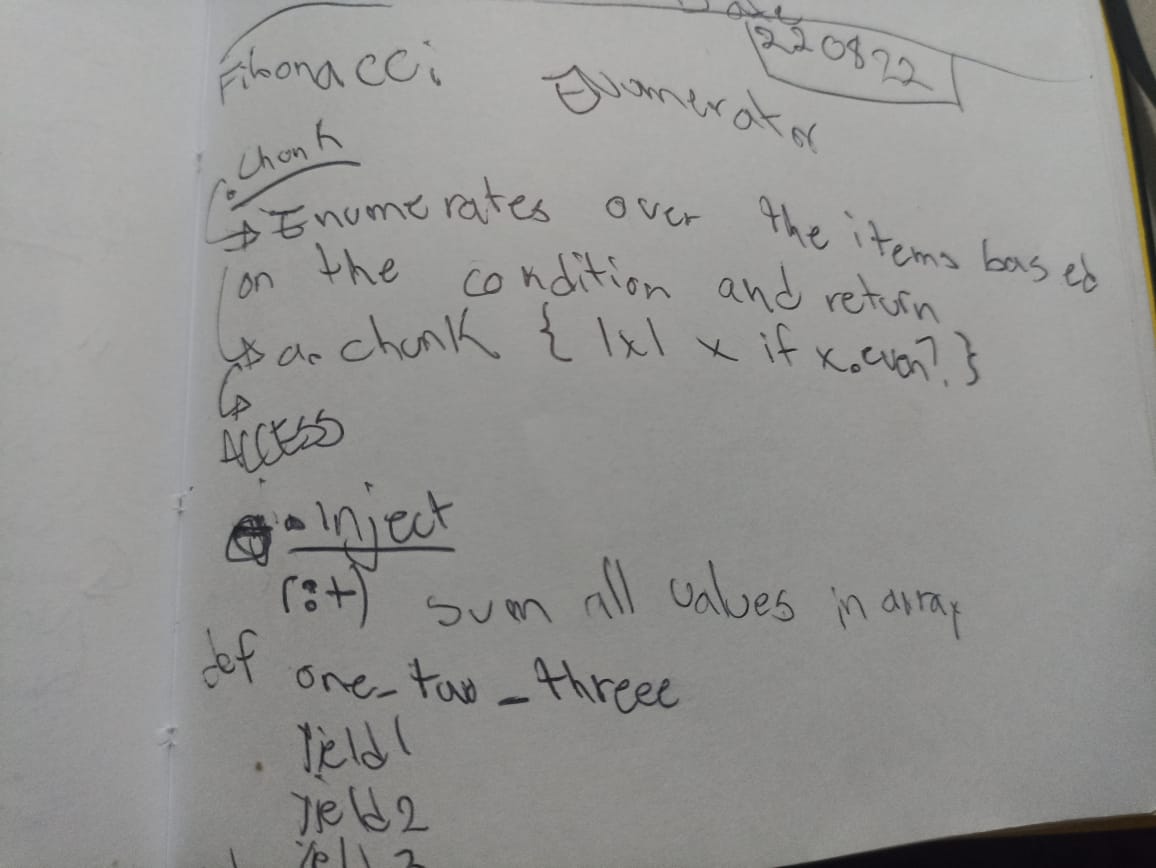 Date
220822
Fibonacci Enumerator
.chunk
→ Enumerates over the items based
on the condition and return
→ a. chunk { |x| x if x.even? }
ACCESS
.Inject
(:+) sum all values in array
def one_two_threee
yield 1
yield 2
yield 3